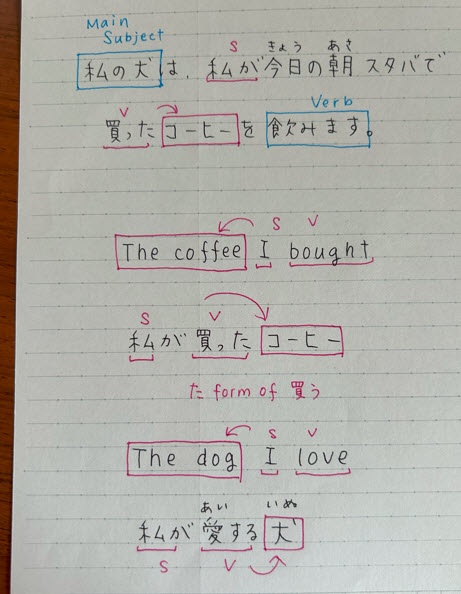 Main
Subject
S きょう あさ
私の犬は、私が今日の朝スタバで
V Verb
買ったコーヒーを飲みます。
S V
The coffee I bought
S V
私が買ったコーヒー
た form of 買う
S V
The dog I love
あい いぬ
私が愛する犬
S V